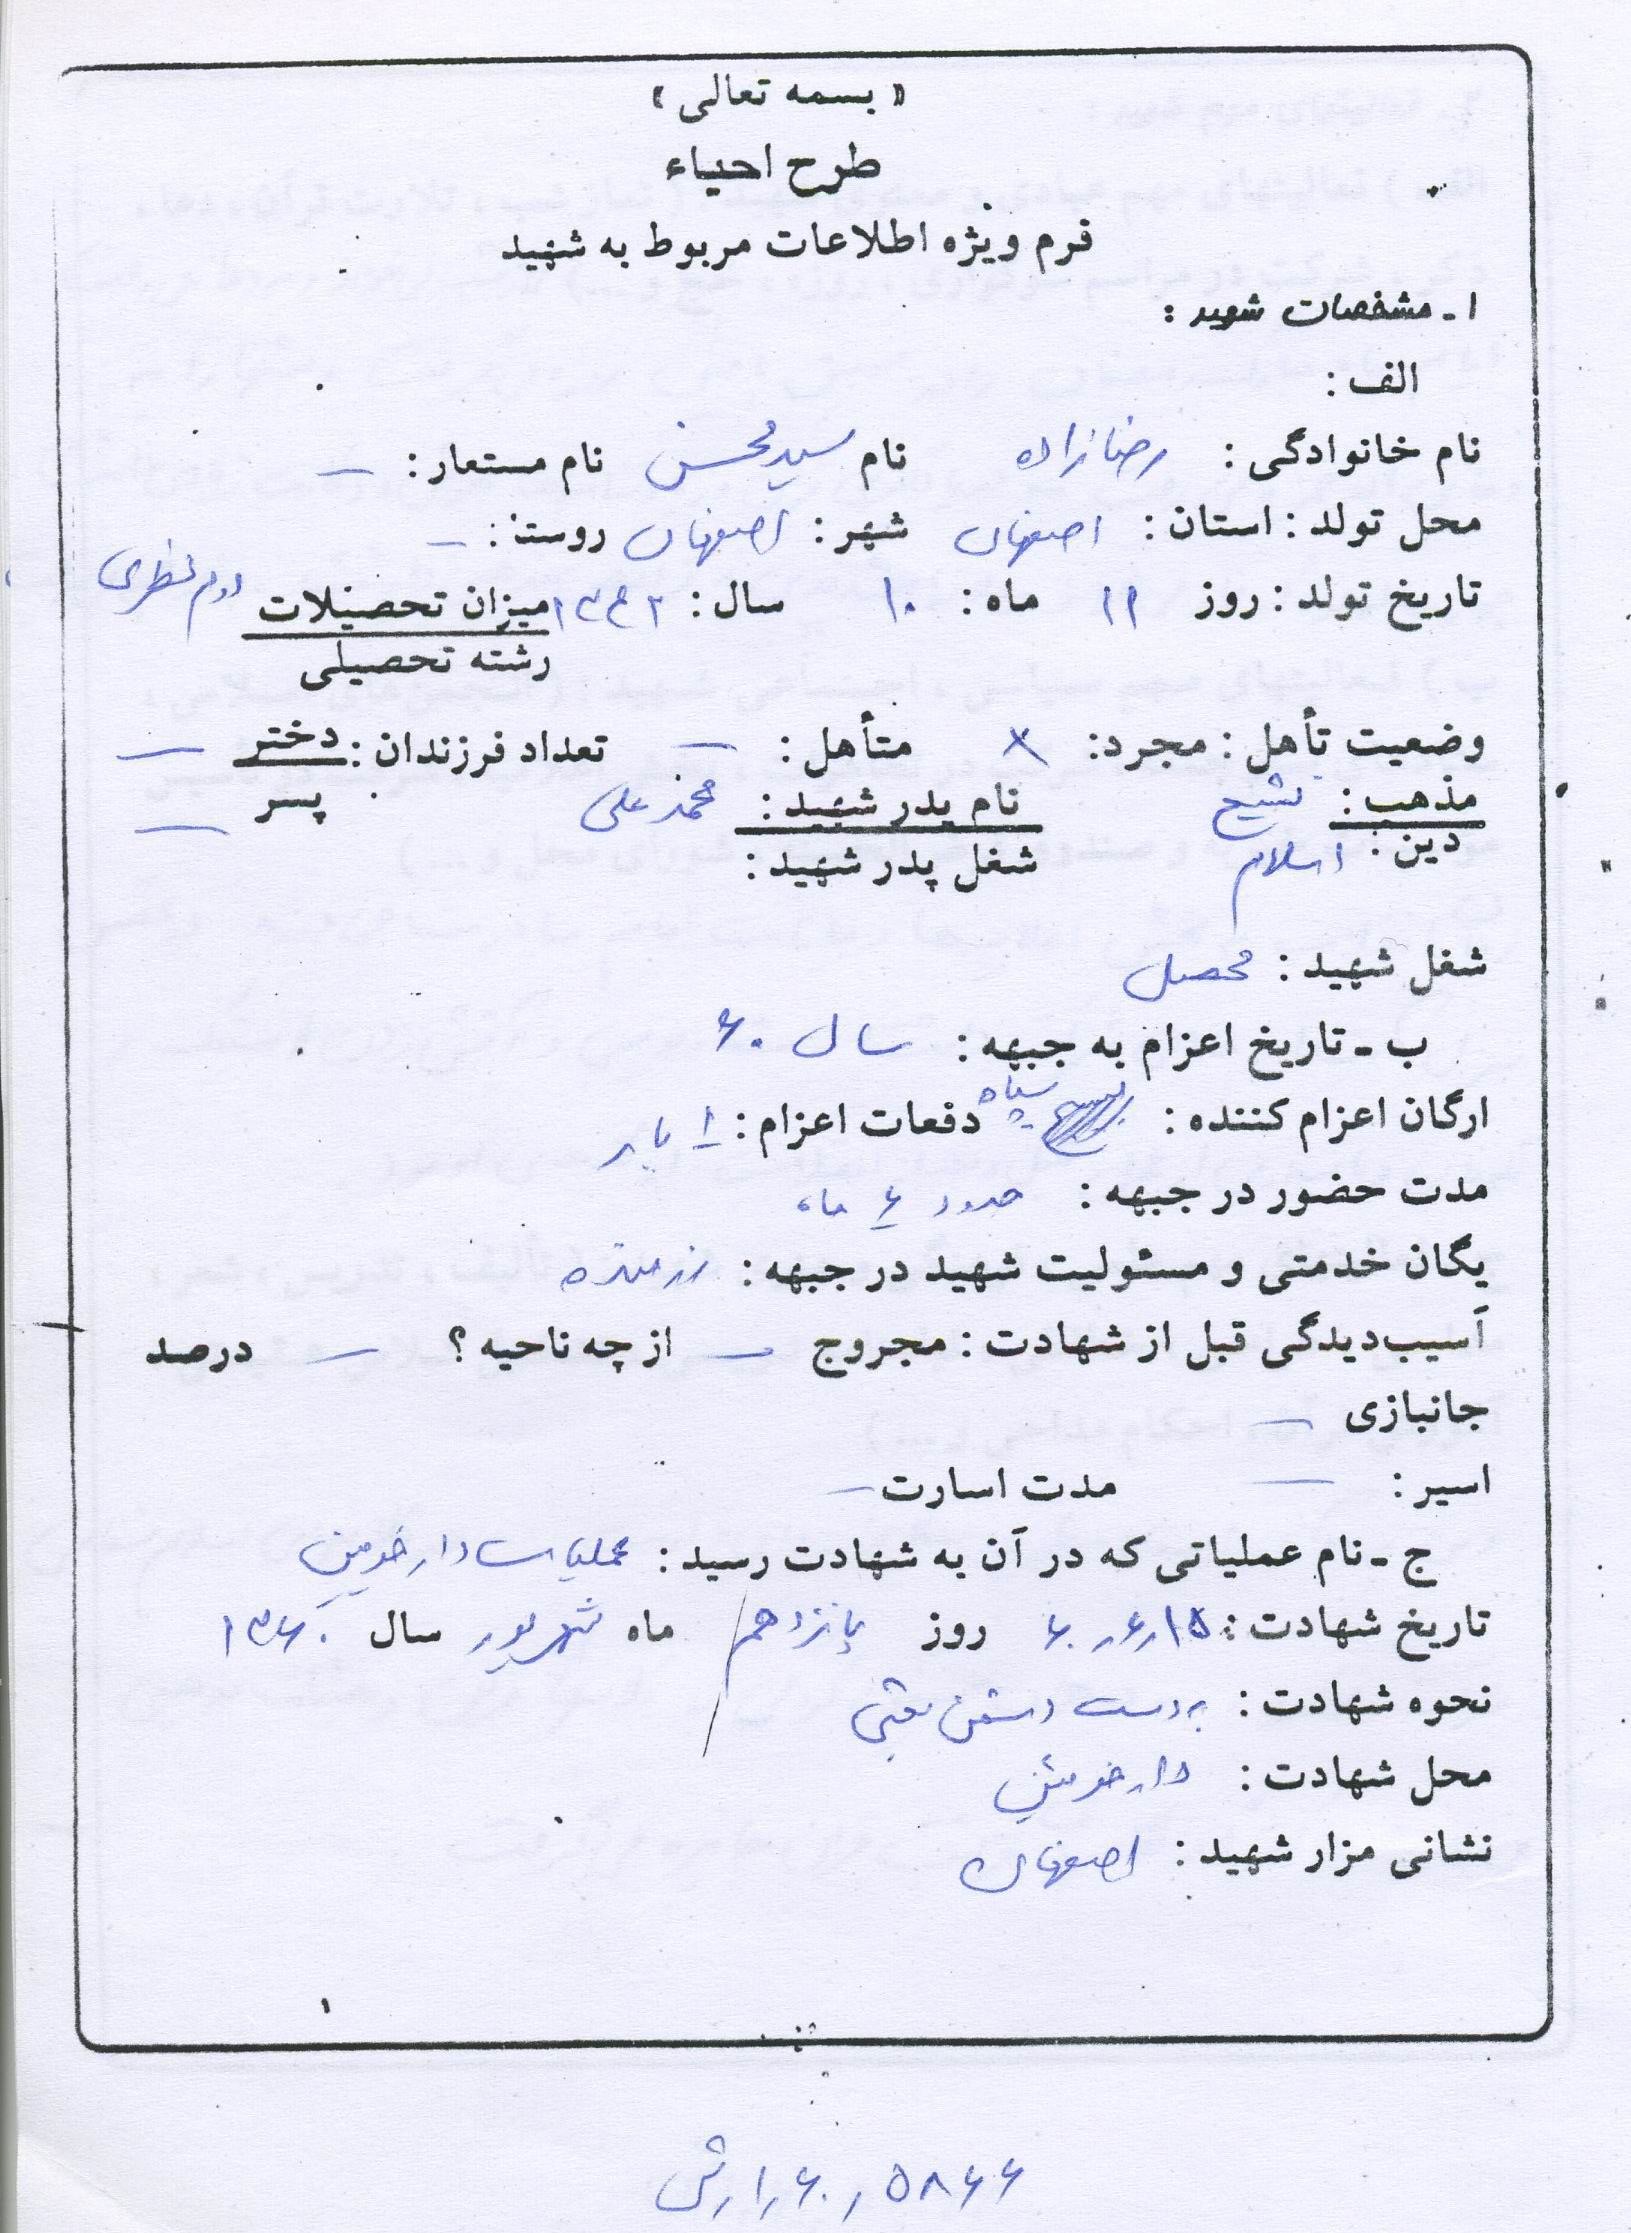 « بسمه تعالی »
طرح احیاء
فرم ویژه اطلاعات مربوط به شهید
۱ - مشخصات شهید :
الف :
نام خانوادگی : رضازاده نام سیدمحسن نام مستعار : —
محل تولد : استان : اصفهان شهر : اصفهان روستا : —
تاریخ تولد : روز ۱۱ ماه : ۱۰ سال : ۱۳۴۲ میزان تحصیلات دوم نظری
رشته تحصیلی
وضعیت تأهل : مجرد : × متأهل : — تعداد فرزندان : دختر —
مذهب : تشیع نام پدر شهید : محمدعلی پسر —
دین : اسلام شغل پدر شهید :
شغل شهید : محصل
ب - تاریخ اعزام به جبهه : سال ۶۰
ارگان اعزام کننده : سپاه دفعات اعزام : ۱ بار
مدت حضور در جبهه : حدود ۶ ماه
یگان خدمتی و مسئولیت شهید در جبهه : رزمنده
آسیب‌دیدگی قبل از شهادت : مجروح — از چه ناحیه ؟ — درصد
جانبازی —
اسیر : — مدت اسارت —
ج - نام عملیاتی که در آن به شهادت رسید : عملیات دارخوین
تاریخ شهادت : ۱۵ر۶ر۶۰ روز پانزدهم ماه شهریور سال ۱۳۶۰
نحوه شهادت : بدست دشمن بعثی
محل شهادت : دارخوین
نشانی مزار شهید : اصفهان
۱
۵۸۶۶ر۶۰ر۱رش